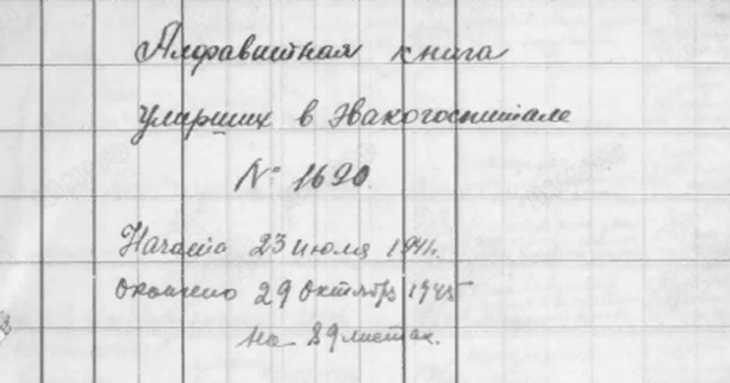 Алфавитная книга
умерших в Эвакогоспитале
№ 1620.
Начато 23 июля 1941г.
окончено 29 октября 1945
на 89 листах.